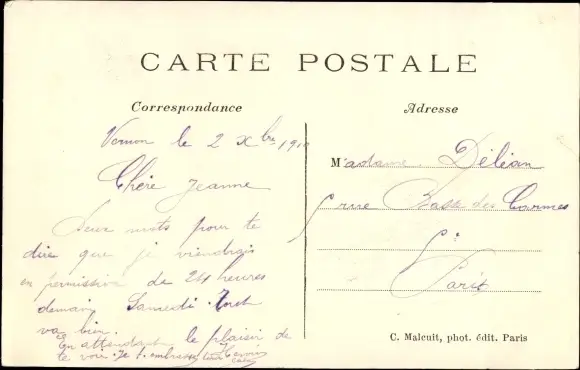 CARTE POSTALE
Correspondance
Adresse
Vernon le 2 Xbre 191
Chère Jeanne
Deux mots pour te
dire que je viendrai
en permission de 24 heures
demain Samedi. Tout
va bien.
En attendant le plaisir de
te voir. Je t'embrasse
Madame Déléan
rue Basse des Carmes
Paris
C. Malcuit, phot. édit. Paris